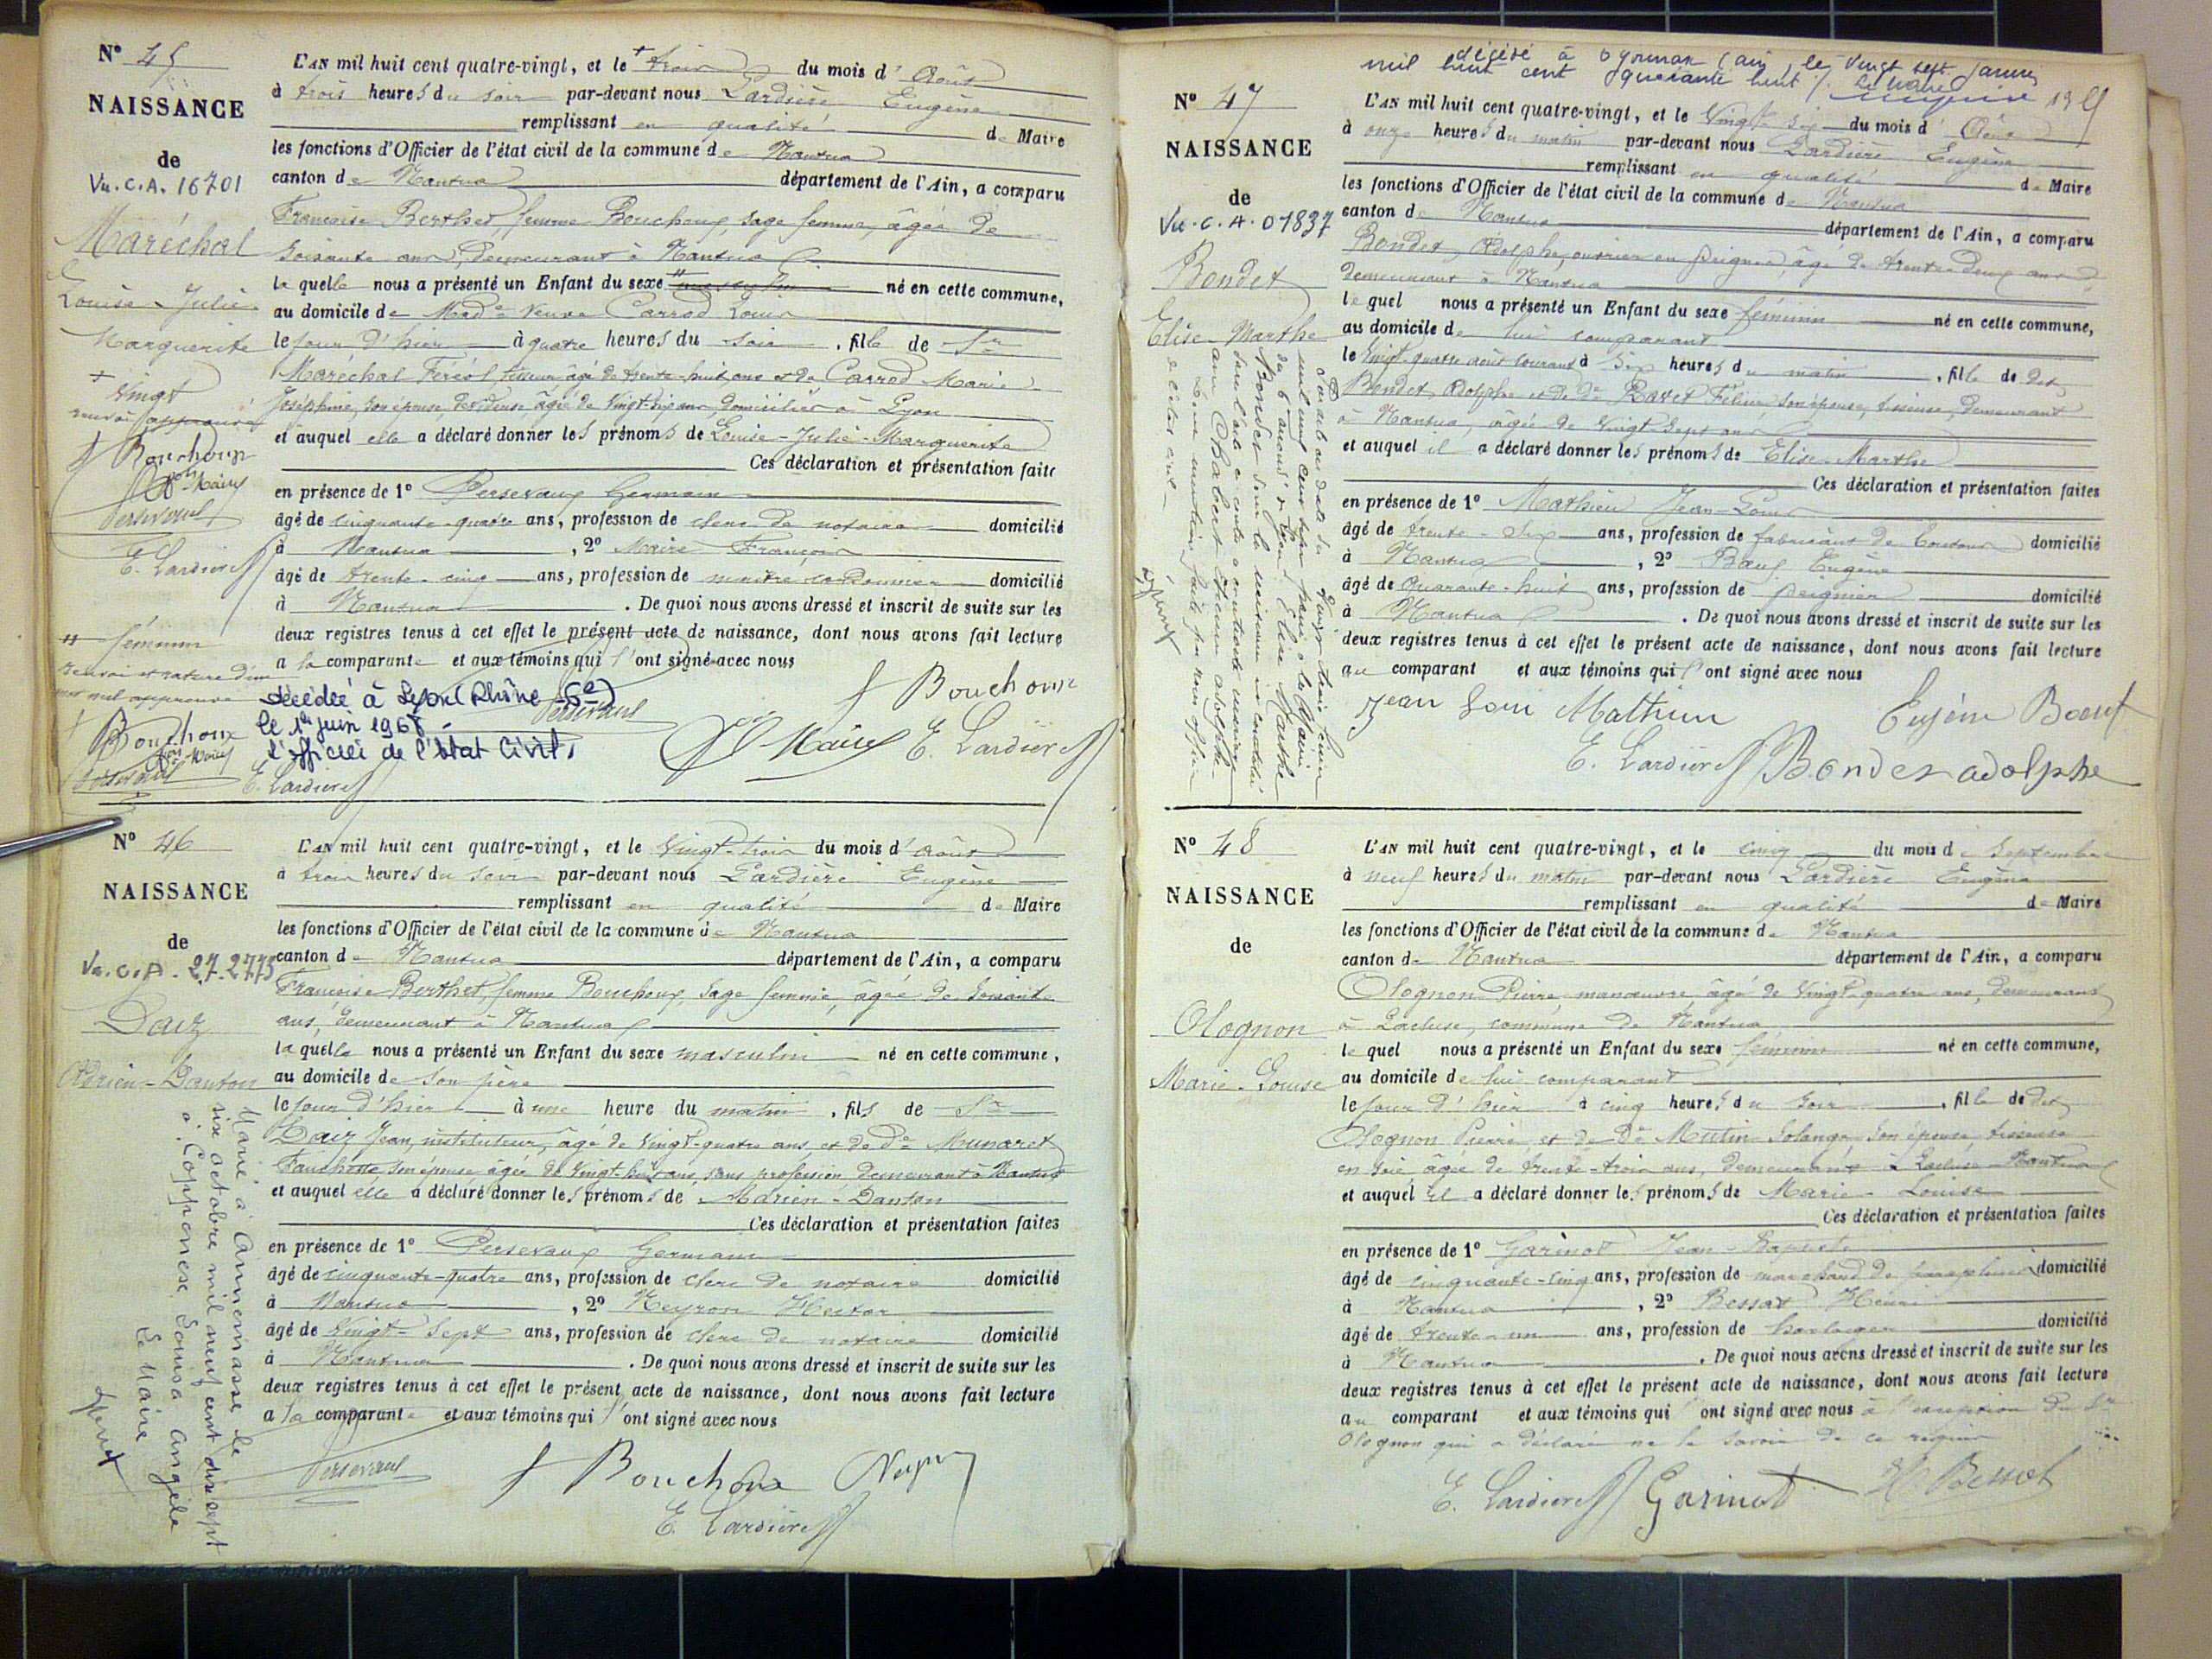 N° 45
NAISSANCE
de
Vu. C. A. 16701
Maréchal
Louise-Julie
Marguerite
+ Vingt
renvoi approuvé
f Bouchoux
Maire
Persevaux
E. Lardière
" féminin
renvoi et rature d'un
mot nul approuvé
f Bouchoux
Persevaux
E. Lardière
L'AN mil huit cent quatre-vingt, et le + trois du mois d' Août
à trois heures du soir par-devant nous Lardière Eugène
remplissant en qualité de Maire
les fonctions d'Officier de l'état civil de la commune de Nantua
canton de Nantua département de l'Ain, a comparu
Françoise Berthet, femme Bouchoux, sage femme, âgée de
soixante ans, demeurant à Nantua
laquelle nous a présenté un Enfant du sexe " masculin né en cette commune,
au domicile de Made Veuve Carrod Louis
le jour d'hier à quatre heures du soir, fille de Sr
Maréchal Féréol, tisseur, âgé de trente-huit ans et de Carrod Marie
Joséphine, son épouse, âgée de vingt-six ans, domiciliés à Lyon
et auquel elle a déclaré donner les prénoms de Louise-Julie-Marguerite
Ces déclaration et présentation faites
en présence de 1° Persevaux Germain
âgé de cinquante-quatre ans, profession de clerc de notaire domicilié
à Nantua, 2° Maire François
âgé de trente-cinq ans, profession de maître cordonnier domicilié
à Nantua. De quoi nous avons dressé et inscrit de suite sur les
deux registres tenus à cet effet le présent acte de naissance, dont nous avons fait lecture
a la comparante et aux témoins qui l'ont signé avec nous
f Bouchoux
Persevaux
Maire E. Lardière
Décédée à Lyon (Rhône 6e)
le 1er juin 1968
L'officier de l'état civil,
N° 46
NAISSANCE
de
Vu. C. A. 27.2775
Daiz
Adrien-Danton
Marié à Armeinasse le
six octobre mil neuf cent dix sept
à Copponesc Louisa Angèle
Le Maire
L'AN mil huit cent quatre-vingt, et le Vingt-trois du mois d' Août
à trois heures du soir par-devant nous Lardière Eugène
remplissant en qualité de Maire
les fonctions d'Officier de l'état civil de la commune de Nantua
canton de Nantua département de l'Ain, a comparu
Françoise Berthet, femme Bouchoux, sage femme, âgée de soixante
ans, demeurant à Nantua
laquelle nous a présenté un Enfant du sexe masculin né en cette commune,
au domicile de son père
le jour d'hier à une heure du matin, fils de Sr
Daiz Jean, instituteur, âgé de vingt-quatre ans, et de De Munaret
Fanchette son épouse âgée de vingt-huit ans, sans profession demeurant à Nantua
et auquel elle a déclaré donner les prénoms de Adrien-Danton
Ces déclaration et présentation faites
en présence de 1° Persevaux Germain
âgé de cinquante-quatre ans, profession de clerc de notaire domicilié
à Nantua, 2° Neyron Hector
âgé de vingt-sept ans, profession de clerc de notaire domicilié
à Nantua. De quoi nous avons dressé et inscrit de suite sur les
deux registres tenus à cet effet le présent acte de naissance, dont nous avons fait lecture
a la comparante et aux témoins qui l'ont signé avec nous
Persevaux f Bouchoux Neyron
E. Lardière
décédé à Oyonnax (ain) le vingt sept janvier
mil huit cent quarante huit /. Le Maire
N° 47
NAISSANCE
de
Vu. C. A. 01837
Bondet
Elise-Marthe
L'AN mil huit cent quatre-vingt, et le Vingt-six du mois d' Août
à onze heures du matin par-devant nous Lardière Eugène
remplissant en qualité de Maire
les fonctions d'Officier de l'état civil de la commune de Nantua
canton de Nantua département de l'Ain, a comparu
Bondet, Adolphe, ouvrier en peignes, âgé de trente-deux ans
demeurant à Nantua
lequel nous a présenté un Enfant du sexe féminin né en cette commune,
au domicile de lui comparant
le vingt-quatre août courant à six heures du matin, fille de dit
Bondet, Adolphe et de De Ravet Félicie, son épouse, tisseuse, demeurant
à Nantua, âgée de vingt-sept ans
et auquel il a déclaré donner les prénoms de Elise-Marthe
Ces déclaration et présentation faites
en présence de 1° Mathieu Jean-Louis
âgé de trente-six ans, profession de fabricant de domicilié
à Nantua, 2° Bœuf Eugène
âgé de Quarante-huit ans, profession de peignier domicilié
à Nantua. De quoi nous avons dressé et inscrit de suite sur les
deux registres tenus à cet effet le présent acte de naissance, dont nous avons fait lecture
au comparant et aux témoins qui l'ont signé avec nous
Jean Louis Mathieu Eugène Boeuf
E. Lardière Bondet adolphe
N° 48
NAISSANCE
de
Olognon
Marie-Louise
L'AN mil huit cent quatre-vingt, et le cinq du mois de Septembre
à neuf heures du matin par-devant nous Lardière Eugène
remplissant en qualité de Maire
les fonctions d'Officier de l'état civil de la commune de Nantua
canton de Nantua département de l'Ain, a comparu
Olognon Pierre, manœuvre, âgé de vingt-quatre ans, demeurant
à Lacluse, commune de Nantua
lequel nous a présenté un Enfant du sexe féminin né en cette commune,
au domicile de lui comparant
le jour d'hier à cinq heures du soir, fille de dit
Olognon Pierre et de De Mutin Solange son épouse, tisseuse
en soie, âgée de trente-trois ans, demeurant à Lacluse-Nantua
et auquel il a déclaré donner les prénoms de Marie-Louise
Ces déclaration et présentation faites
en présence de 1° Garinot Jean-Baptiste
âgé de cinquante-cinq ans, profession de marchand de parapluies domicilié
à Nantua, 2° Bessat Henri
âgé de trente-un ans, profession de horloger domicilié
à Nantua. De quoi nous avons dressé et inscrit de suite sur les
deux registres tenus à cet effet le présent acte de naissance, dont nous avons fait lecture
au comparant et aux témoins qui l'ont signé avec nous à l'exception du Sr
Olognon qui a déclaré ne le savoir de ce requis
E. Lardière Garinot H. Bessat